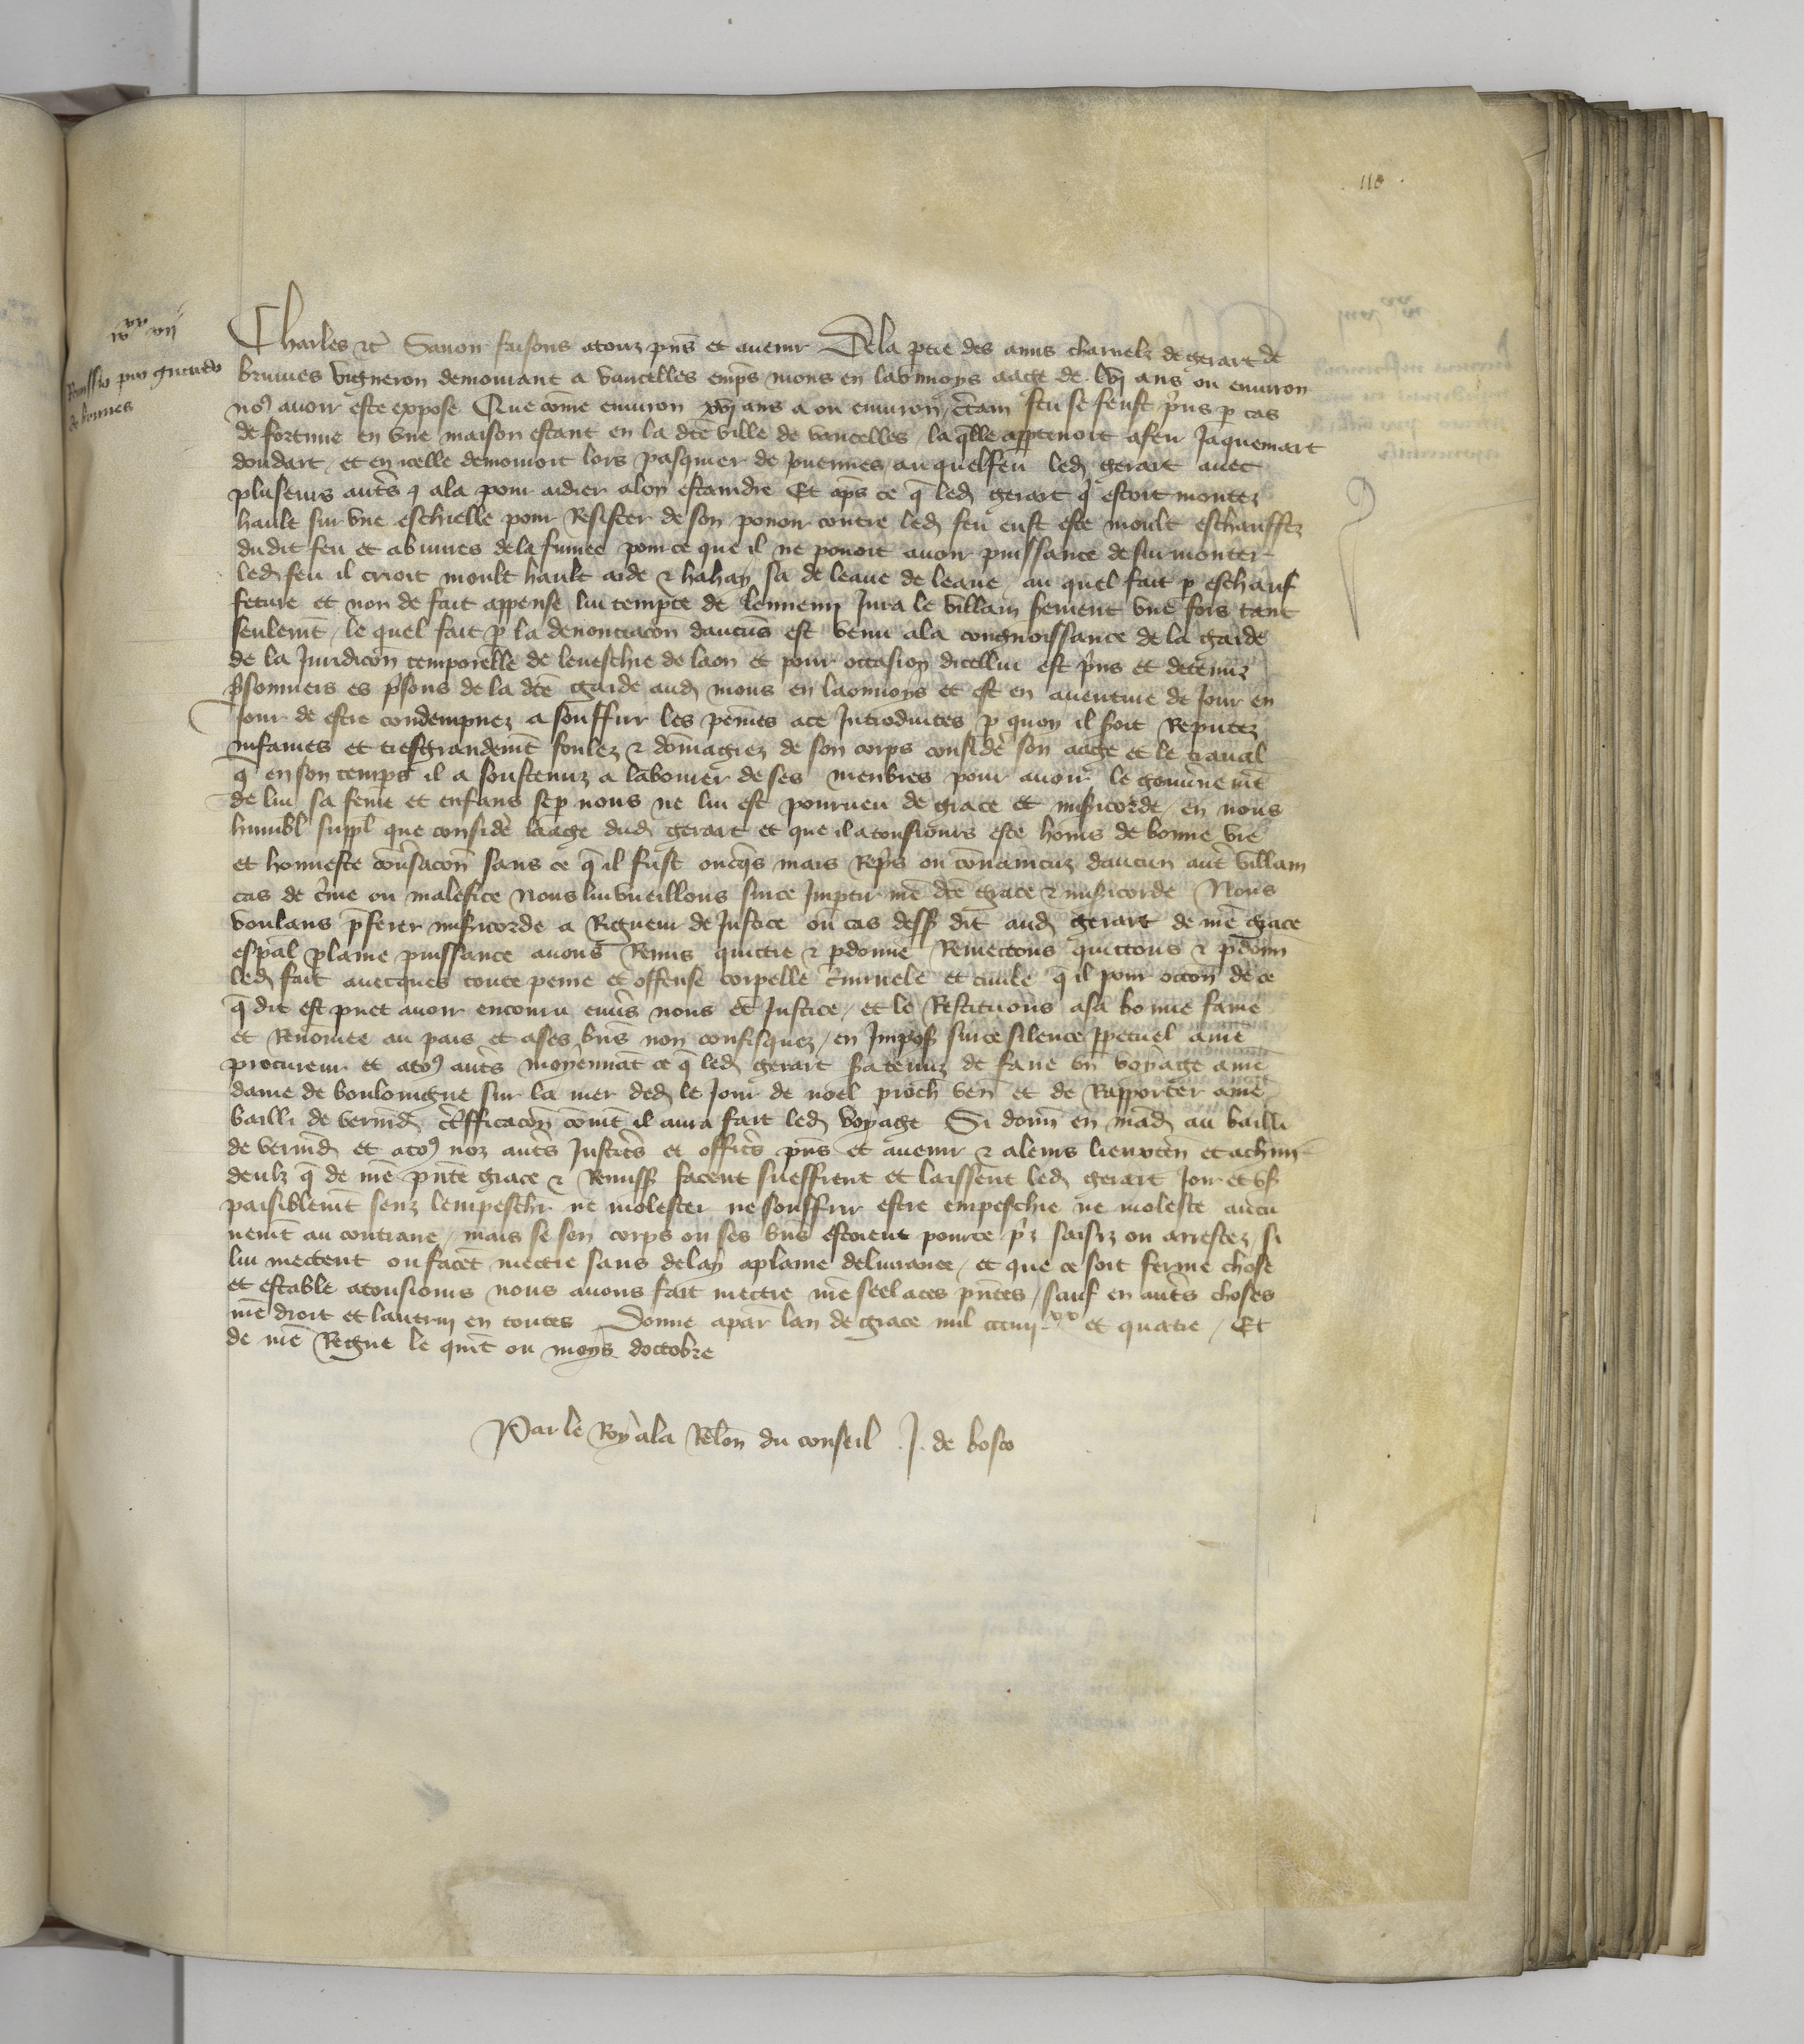 110
iiiixx vii
Remissio pro Girardo
de brunes
Charles etc Savoir faisons a touz pns et avenir De la ptie des amis charnelz de Gerart de
brunes vigneron demourant a vaucelles emps mons en laonnoys aagé de lvj ans ou environ
no9 avoir esté exposé Que come environ xvj ans a ou environ ctain feu se feust prins p cas
de fortune en une maison estant en la dte ville de vaucelles / la qlle apptenoit a feu Jaquemart
doudart / et en icelle demouroit lors pasquier de / au quel feu led gerart avec
pluseurs autes ala pour aidier a loy estaindre Et aps ce q led gerart q estoit montez
hault sur une eschielle pour Resister de son povoir contre led feu eust esté moult eschauffez
du dit feu et abuves de la fumee pour ce que il ne povoit avoir puissance de surmonter
led feu il crioit moult hault aide & hahay sa de leaue de leaue / au quel fait p eschauf
feture et non de fait appensé lui tempte de lennemi Jura le villain serment une fois tant
seulemt / le quel fait p la denonciacon daucuns est venu a la congnoissance de la garde
de la Juridicon temporelle de leveschié de laon et pour occasion dicellui est prins et detenuz
prsonniers es prsons de la dte garde aud mons en laonnoys et est en aventure de Jour en
Jour de estre condempnez a souffrir les peines a ce Introduites p quoy il soit Reputez
infames et tresgrandemt foulez & domagiez de son corps considé son aage et le travail
q en son temps il a soustenuz a labourer de ses menbres pour avoir le gouvnemt
de lui sa feme et enfans se p nous ne lui est pourveu de grace et misicorde / en nous
humbl suppl que considé laage dud gerart et que il a tousiours esté homs de bonne vie
et honneste convsacon sans ce q il fust oncqs mais Reprs ou convaincuz daucun aute villain
cas de crime ou malefice Nous lui vueillons sur ce Impartir nre dte grace & misicorde Nous
voulans pferer misicorde a Rigueur de Justice ou cas dessus dit aud gerart de nre grace
espal plaine puissance avons Remis quictié & pdonné Remectons quictons & pdonn
led fait avecques toute peine et offense corpelle criminele et civile q il pour occon de ce
q dit est puet avoir encouru envs nous et Justice / et le Restituons a sa bonne fame
et Renomee au pais et a ses bns non confisquez / en Impost sur ce silence ppetuel a nre
procureur et a to9 auts moyennat ce q led gerart sa tenuz de faire un voyage a nre
dame de boulouigne sur la mer ded le Jour de noel proch ven et de Rapporter a nre
bailli de vermd ctifficacon comt il aura fait led voyage Si donn en mad au bailli
de vermd et a to9 noz auts Justicrs et officrs pns et avenir & a leurs lieuxten et a chun
deulz q de nre pnte grace & Remiss facent sueffrent et laissent led gerart Joir et us
paisiblemt senz lempeschr ne molester ne souffrir estre empeschié ne molesté aucu
nemt au contraire / mais se son corps ou ses bns estoient pour ce pris saisiz ou arrestez si
lui mectent ou facet mectre sans delay a plaine delivrance / et que ce soit ferme chose
et estable a tousiours nous avons fait mectre nre seel a ces pntes / sauf en auts choses
nre droit et lautruy en toutes Donné a par lan de grace mil ccciiiixx et quatre / Et
de nre Regne le quit ou moys doctobre
Par le Roy a la Relon du conseil J. de bosco